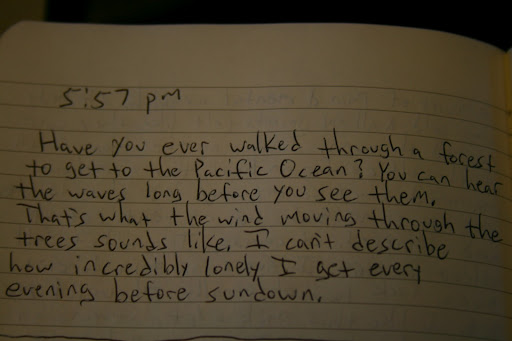 5:57 pm
Have you ever walked through a forest
to get to the Pacific Ocean? You can hear
the waves long before you see them.
That's what the wind moving through the
trees sounds like. I can't describe
how incredibly lonely I get every
evening before sundown.